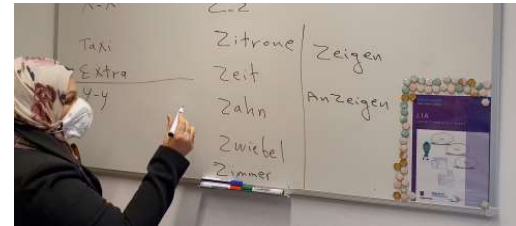 X-X
Taxi
Extra
Y-y
Z-Z
Zitrone
Zeit
Zahn
Zwiebel
Zimmer
Zeigen
AnZeigen